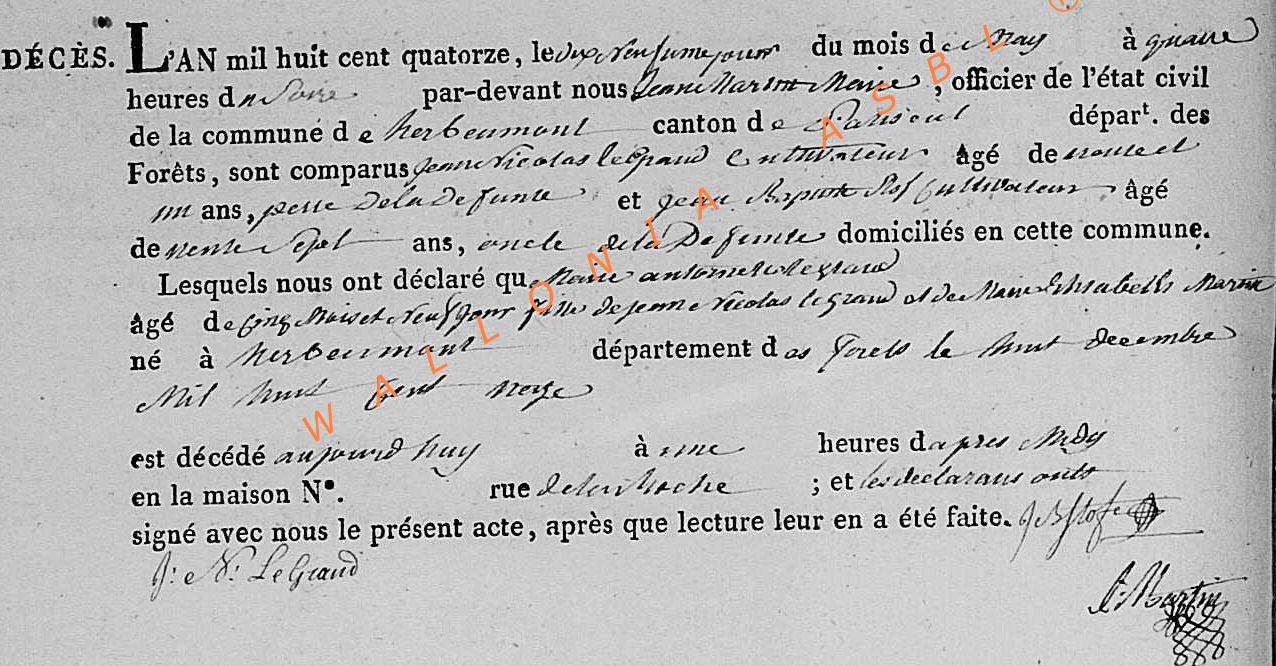 DÉCÈS. L'AN mil huit cent quatorze, le dix neufieme jour du mois de May à quatre
heures du Soire par-devant nous Jeane Martin Maire, officier de l'état civil
de la commune de herbeumont canton de Paliseul départ. des
Forêts, sont comparus jeane Nicolas legrand Cultivateur âgé de trente et
un ans, perre De la Defunte et jean Baptiste Stof Cultivateur âgé
de trente Sept ans, oncle de la Defunte domiciliés en cette commune.
Lesquels nous ont déclaré que Marie antoinette legrand
âgé de cinq Mois et Neuf jour fille de jeane Nicolas legrand et de Marie Elisabette Martin
né à herbeumont département des forets le huit decembre
Mil huit Cent treize
est décédé aujourd huy à une heures d apres Midy
en la maison N°. rue de la Roche ; et les declarans onts
signé avec nous le présent acte, après que lecture leur en a été faite. J B Stofe
J: N: LeGrand
Martin
WALLONIA ASBL ©